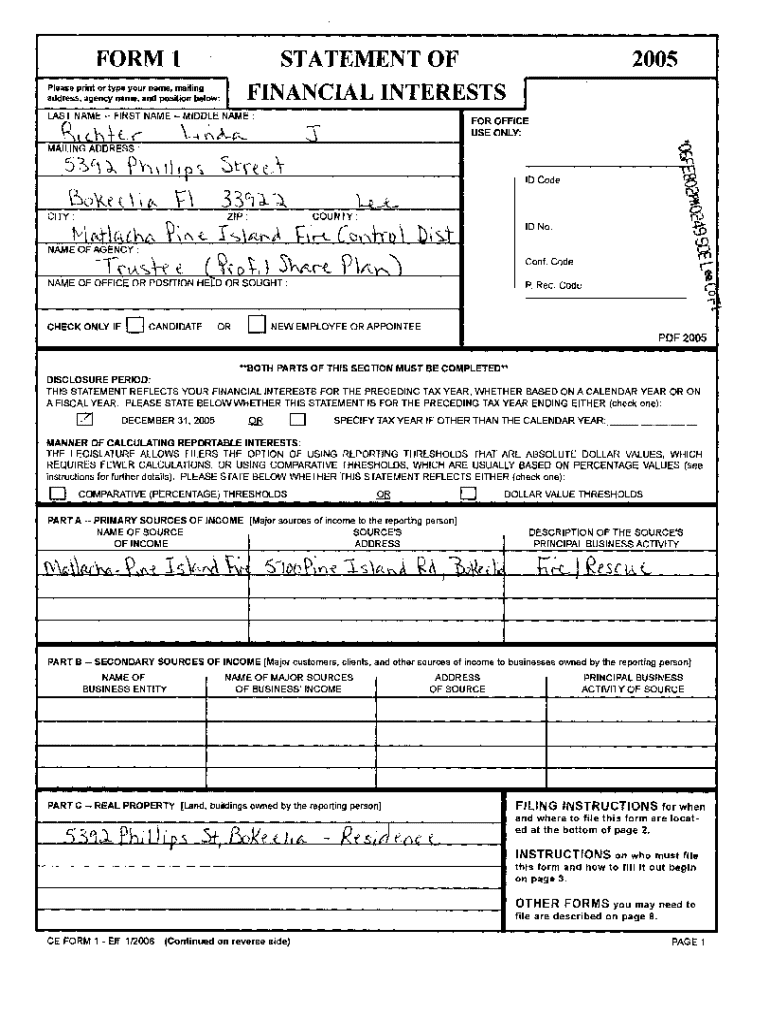 FORM 1 STATEMENT OF 2005
Please print or type your name, mailing
address, agency name, and position below:
FINANCIAL INTERESTS
LAST NAME -- FIRST NAME -- MIDDLE NAME :
Richter Linda J
MAILING ADDRESS :
5392 Phillips Street
Bokeelia Fl 33922 Lee
CITY : ZIP : COUNTY :
Matlacha Pine Island Fire Control Dist
NAME OF AGENCY :
Trustee (Prof.) Share Plan)
NAME OF OFFICE OR POSITION HELD OR SOUGHT :
CHECK ONLY IF CANDIDATE OR NEW EMPLOYEE OR APPOINTEE
FOR OFFICE
USE ONLY:
ID Code
ID No.
Conf. Code
P. Req. Code
PDF 2005
*06FEB02PM0249SOE Lee Co Fl
**BOTH PARTS OF THIS SECTION MUST BE COMPLETED**
DISCLOSURE PERIOD:
THIS STATEMENT REFLECTS YOUR FINANCIAL INTERESTS FOR THE PRECEDING TAX YEAR, WHETHER BASED ON A CALENDAR YEAR OR ON
A FISCAL YEAR. PLEASE STATE BELOW WHETHER THIS STATEMENT IS FOR THE PRECEDING TAX YEAR ENDING EITHER (check one):
DECEMBER 31, 2005 OR SPECIFY TAX YEAR IF OTHER THAN THE CALENDAR YEAR:
MANNER OF CALCULATING REPORTABLE INTERESTS:
THE LEGISLATURE ALLOWS FILERS THE OPTION OF USING REPORTING THRESHOLDS THAT ARE ABSOLUTE DOLLAR VALUES, WHICH
REQUIRES FEWER CALCULATIONS, OR USING COMPARATIVE THRESHOLDS, WHICH ARE USUALLY BASED ON PERCENTAGE VALUES (see
instructions for further details). PLEASE STATE BELOW WHETHER THIS STATEMENT REFLECTS EITHER (check one):
COMPARATIVE (PERCENTAGE) THRESHOLDS OR DOLLAR VALUE THRESHOLDS
PART A -- PRIMARY SOURCES OF INCOME [Major sources of income to the reporting person]
NAME OF SOURCE SOURCE'S DESCRIPTION OF THE SOURCE'S
OF INCOME ADDRESS PRINCIPAL BUSINESS ACTIVITY
Matlacha-Pine Island Fire 5700 Pine Island Rd, Bokeelia Fire / Rescue
PART B -- SECONDARY SOURCES OF INCOME [Major customers, clients, and other sources of income to businesses owned by the reporting person]
NAME OF NAME OF MAJOR SOURCES ADDRESS PRINCIPAL BUSINESS
BUSINESS ENTITY OF BUSINESS' INCOME OF SOURCE ACTIVITY OF SOURCE
PART C -- REAL PROPERTY [Land, buildings owned by the reporting person]
5392 Phillips St, Bokeelia - Residence
FILING INSTRUCTIONS for when
and where to file this form are locat-
ed at the bottom of page 2.
INSTRUCTIONS on who must file
this form and how to fill it out begin
on page 3.
OTHER FORMS you may need to
file are described on page 6.
CE FORM 1 - Eff. 1/2006 (Continued on reverse side) PAGE 1